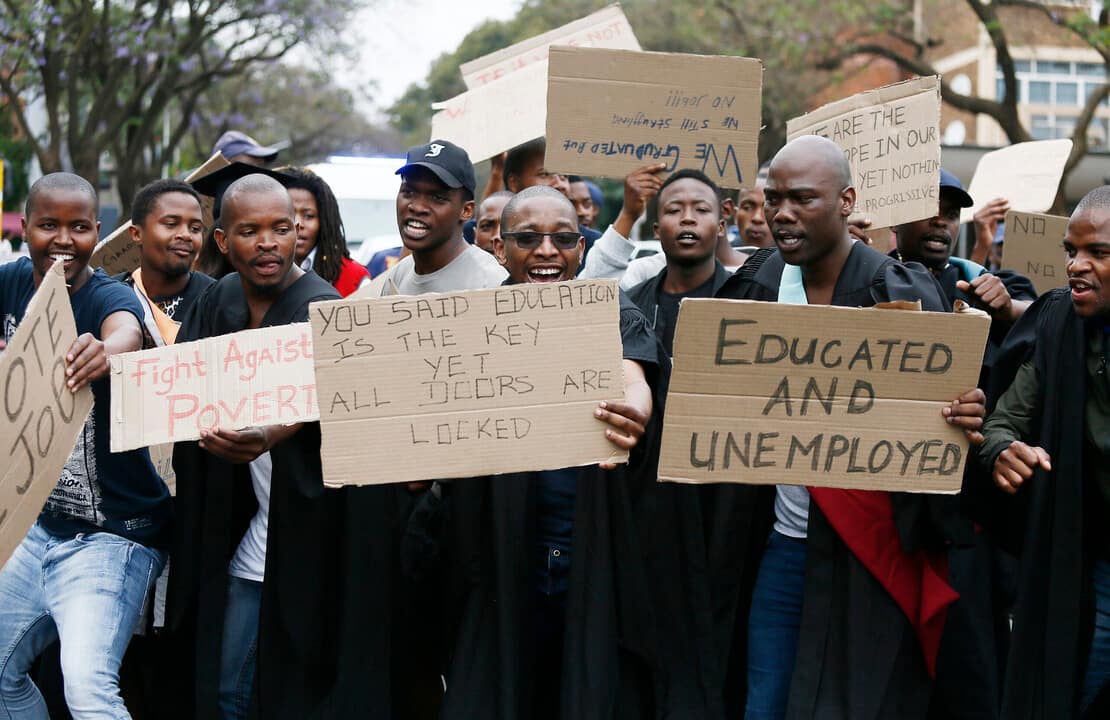 NOT
WE GRADUATED BUT
WE STILL STRUGGLING
NO JOB!!!
WE ARE THE
OPE IN OUR
YET NOTHING
PROGRESSIVE
NO
NO
OTE
Fight Agaist
POVERT
YOU SAID EDUCATION
IS THE KEY
YET
ALL DOORS ARE
LOCKED
EDUCATED
AND
UNEMPLOYED